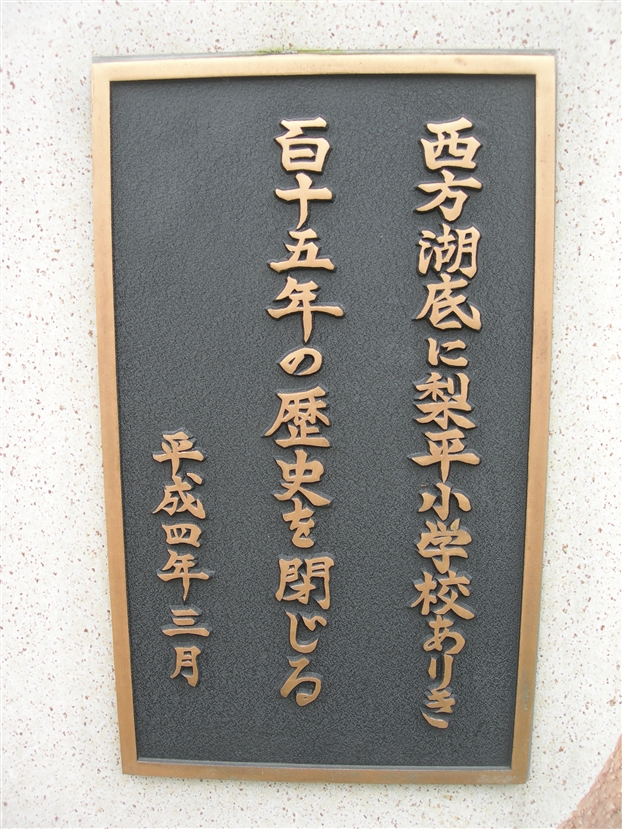 西方湖底に梨平小学校ありき
百十五年の歴史を閉じる
平成四年三月